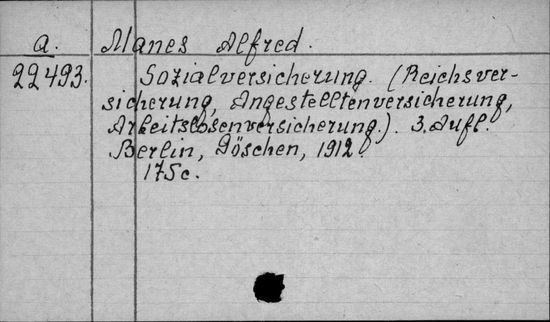 a. Manes Alfred.
22493. Sozialversicherung. (Reichsver-
sicherung, Angestelltenversicherung,
Arbeitslosenversicherung.). 3. Aufl.
Berlin, Göschen, 1912.
175c.